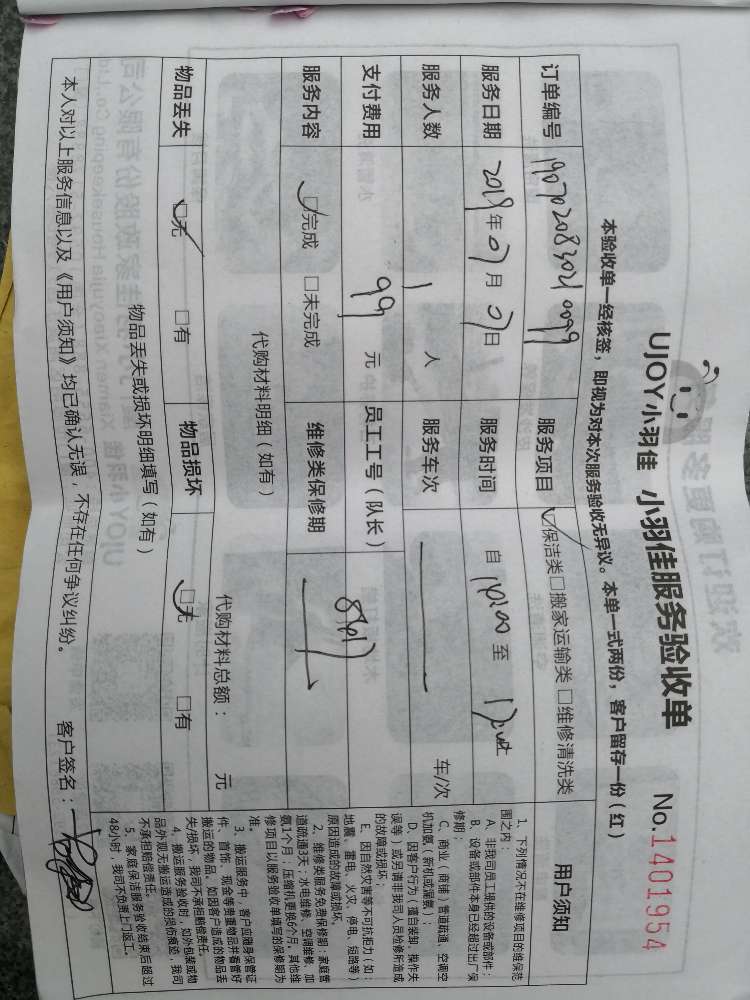 UJOY小羽佳 小羽佳服务验收单 No.1401954
本验收单一经核签，即视为对本次服务验收无异议。本单一式两份，客户留存一份（红）
订单编号 服务项目 ☑保洁类□搬家运输类 □维修清洗类
服务日期 2019年07月07日 服务时间 自 至
服务人数 1 人 服务车次 车/次
支付费用 99 元 员工工号（队长）
服务内容 ☑完成 □未完成 维修类保修期
代购材料明细（如有） 代购材料总额： 元
物品丢失 ☑无 □有 物品损坏 ☑无 □有
物品丢失或损坏明细填写（如有）
本人对以上服务信息以及《用户须知》均已确认无误，不存在任何争议纠纷。 客户签名：
用户须知
1、下列情况不在维修项目的维保范
围之内：
A、非我司员工提供的设备或部件；
B、设备或部件本身已经超过出厂保
修期；
C、商业（商铺）管道疏通、空调空
机加氨（新机或漏氨）；
D、因客户行为（擅自装卸、操作失
误等）或另请非我司人员检修所造成
的故障或损坏；
E、因自然灾害等不可抗拒力（如：
地震、雷电、火灾、停电、短路等）
原因造成的故障或损坏。
2、维修类服务免费保修期：家庭管
道疏通3天；水电维修、空调维修、加
氨1个月；压缩机更换6个月。其他维
修项目以服务验收单填写的保修期为
准。
3、搬运服务中，客户应随身保管证
件、首饰、现金等贵重物品并看管好
搬运的物品。如因客户造成的物品丢
失/损坏，我司不承担赔偿责任。
4、搬运服务验收时，如外包装或物
品外观无搬运造成的损伤痕迹，我司
不承担赔偿责任。
5、家庭保洁服务验收结束后超过
48小时，我司不负责上门返工。